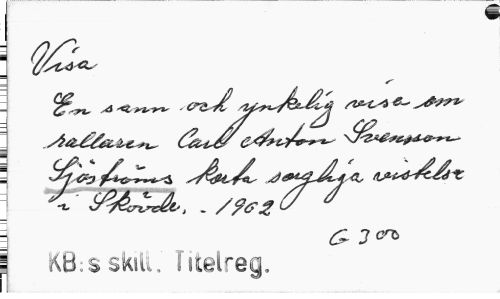 Visa
En sann och ynkelig visa om
rallaren Carl Anton Svensson
Sjöströms korta sorgliga vistelse
i Skövde. - 1962
G 300
KB:s skill. Titelreg.